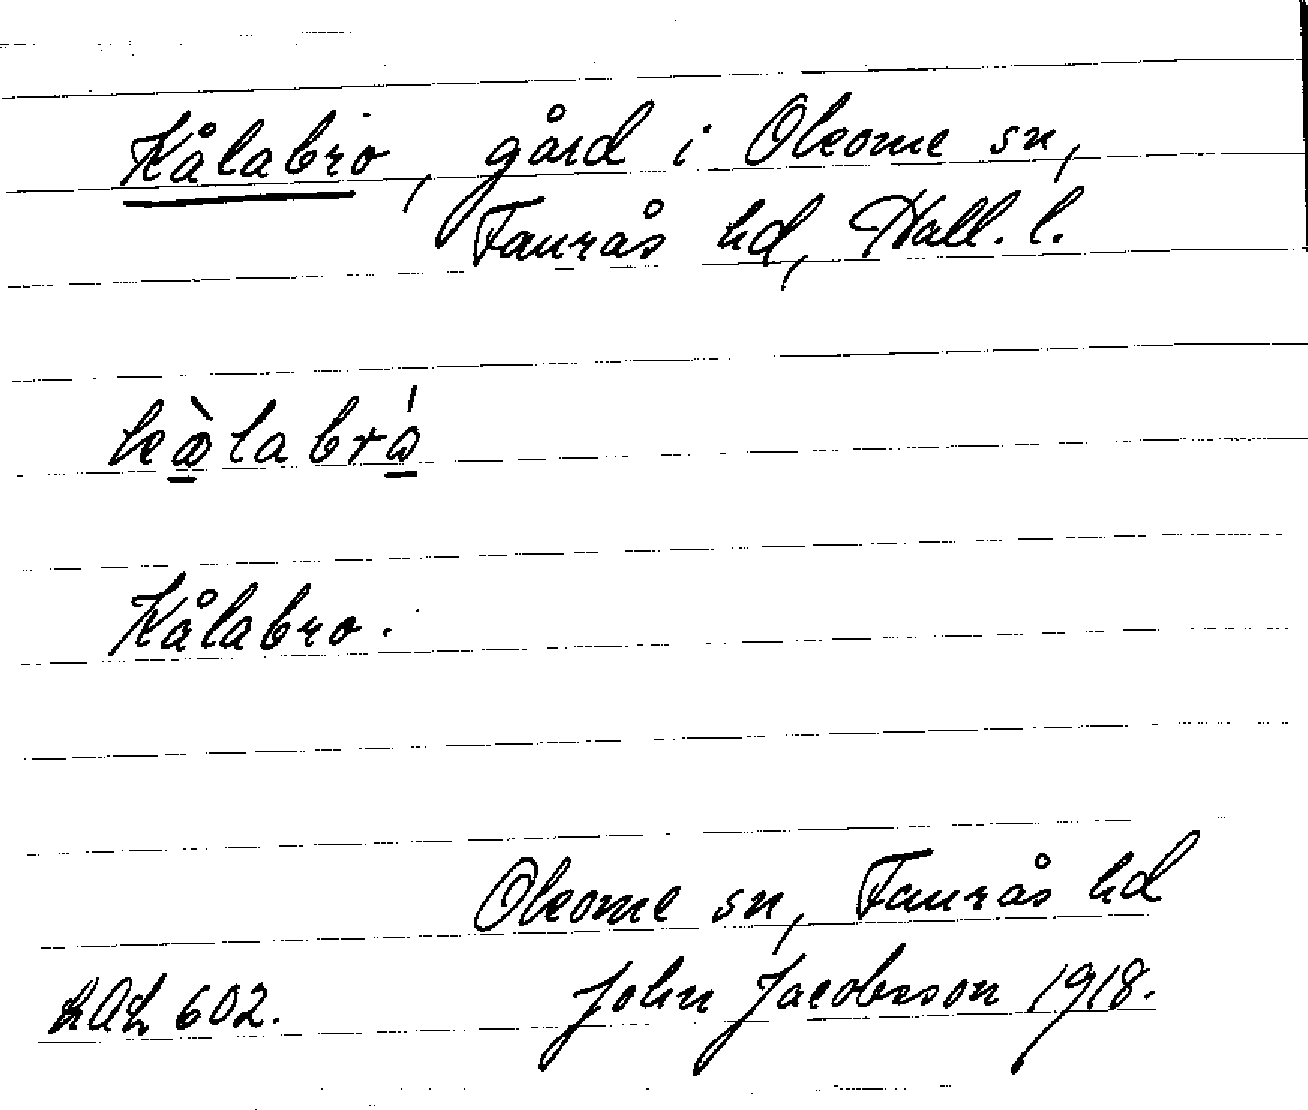 Kålabro, gård i Okome sn,
Faurås hd, Hall. l.
Kålabro.
Okome sn, Faurås hd
LAL 602. John Jacobsson 1918.